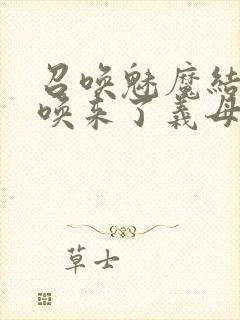 召唤魅魔結
唤来了義母
草士